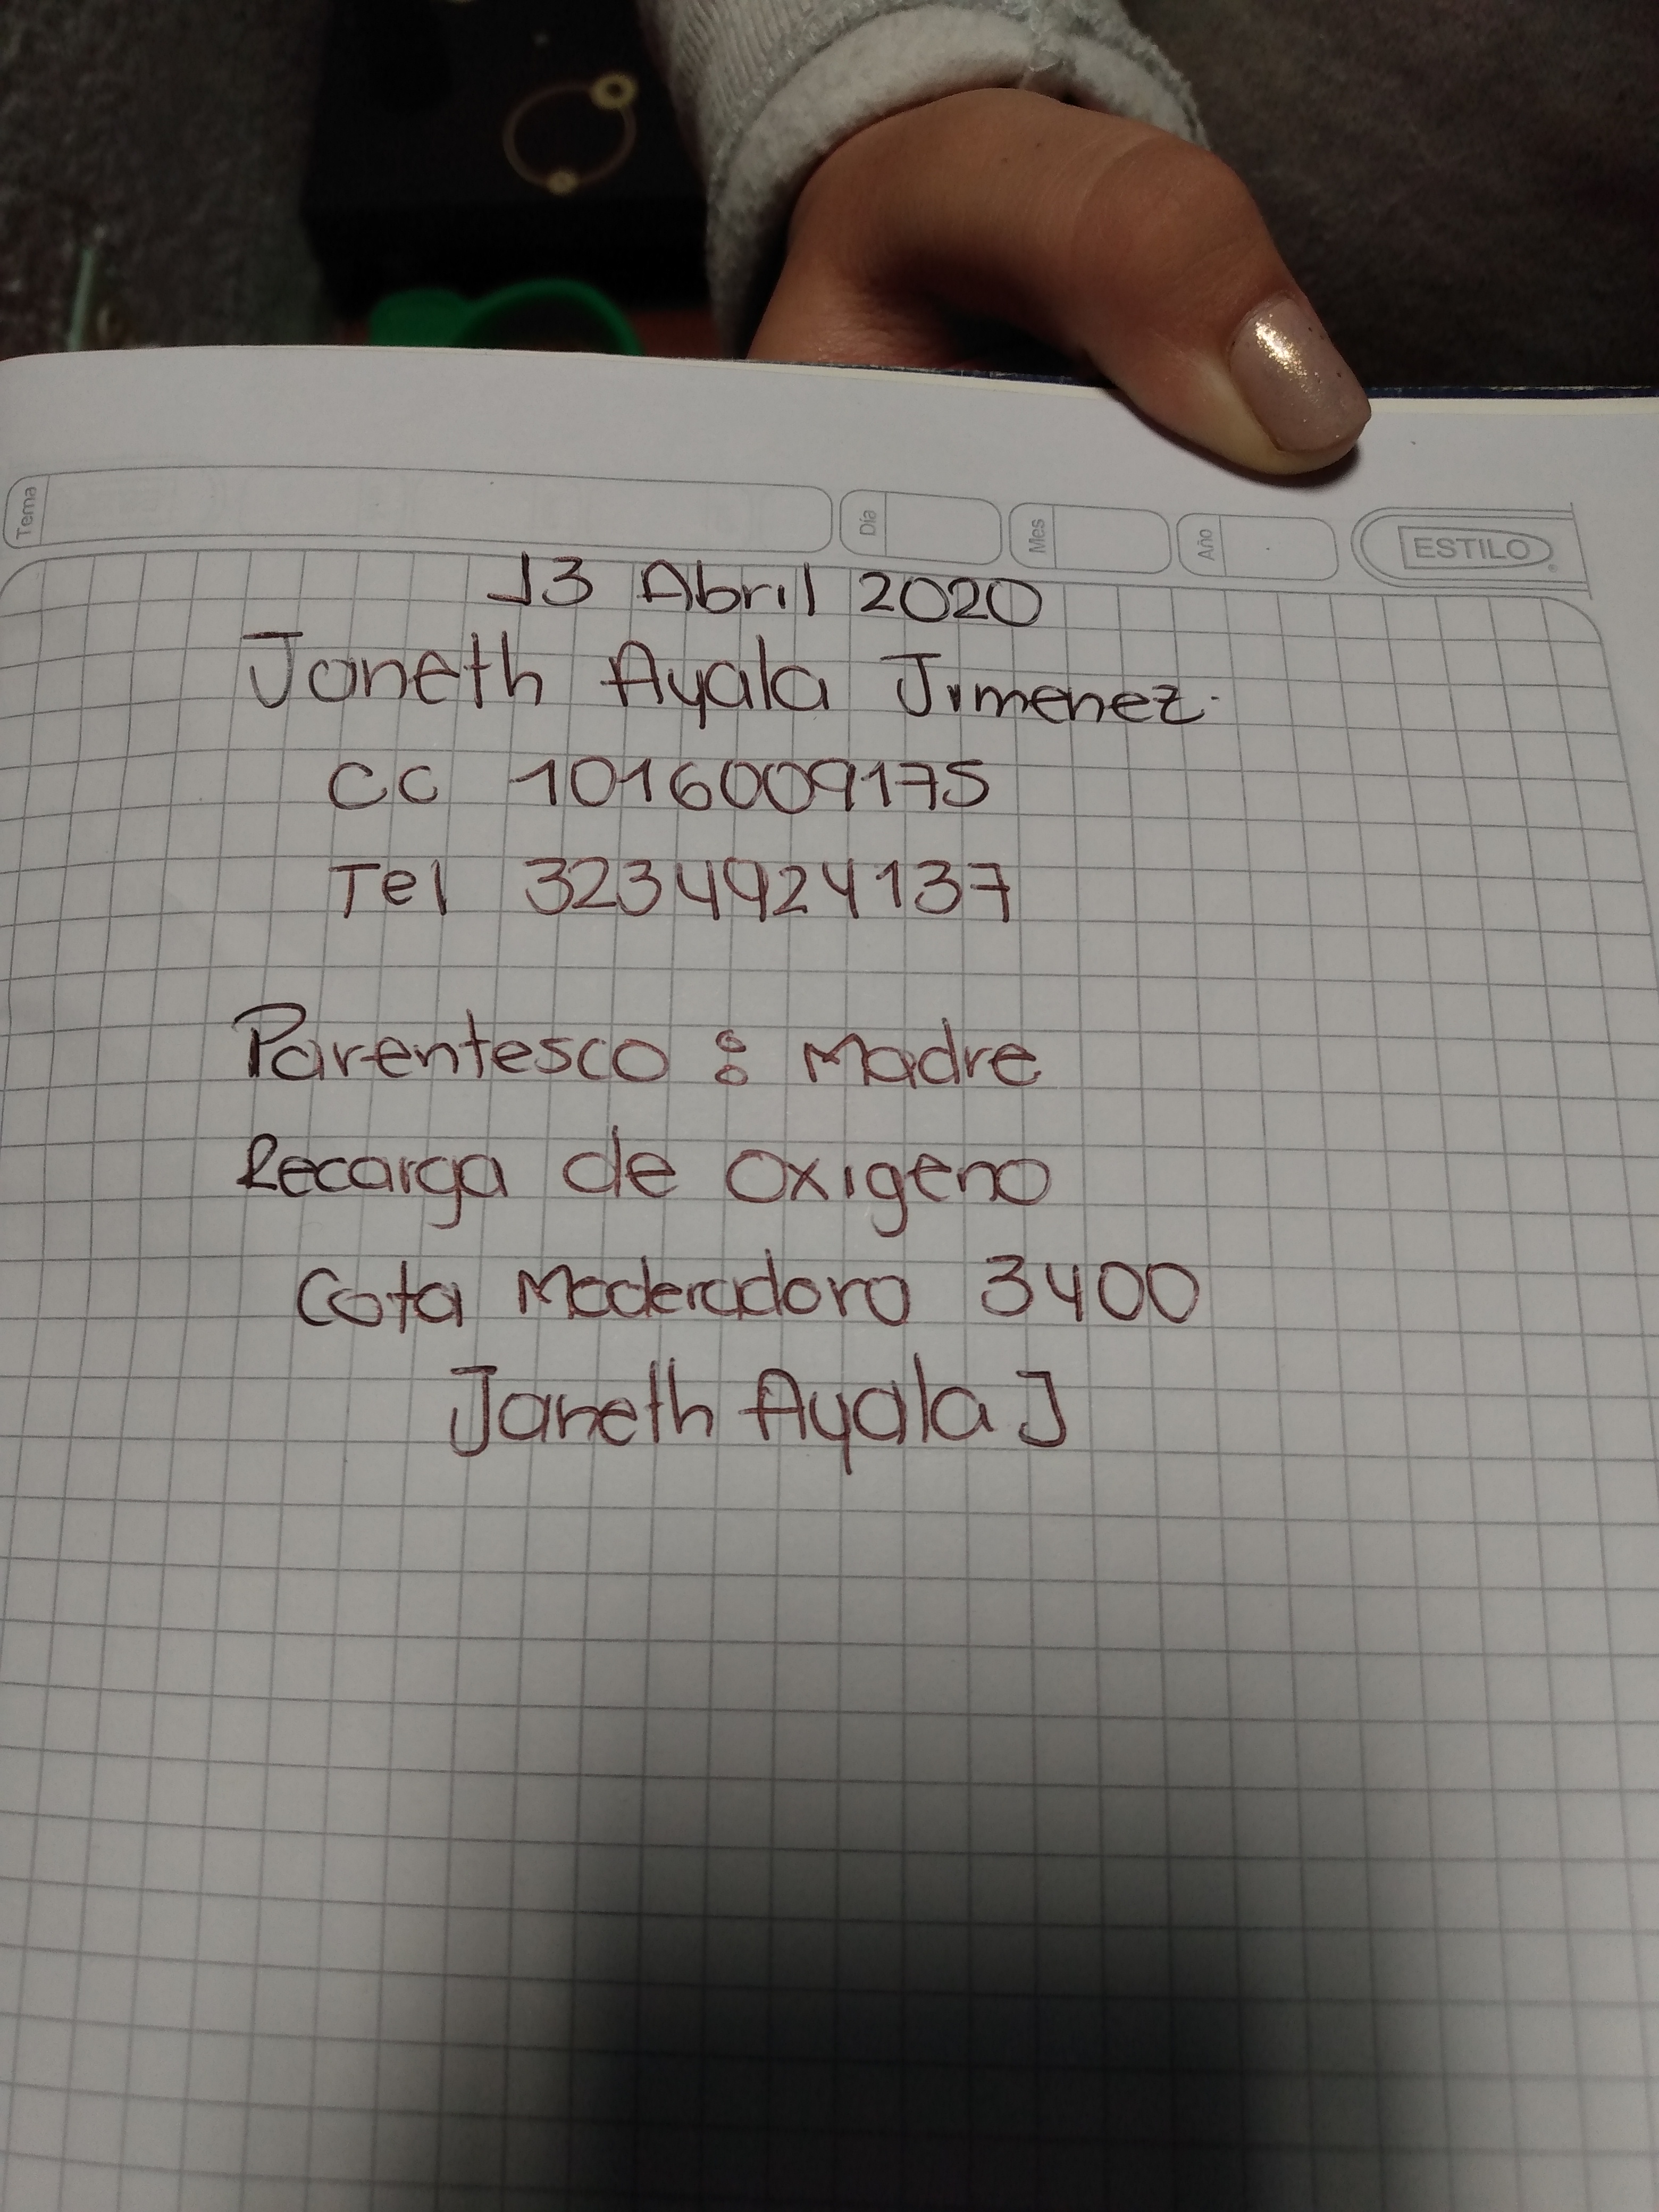 Tema Día Mes Año ESTILO
13 Abril 2020
Janeth Ayala Jimenez.
CC 1016009175
Tel 3234924137
Parentesco : Madre
Recarga de oxigeno
Cota Moderadora 3400
Janeth Ayala J